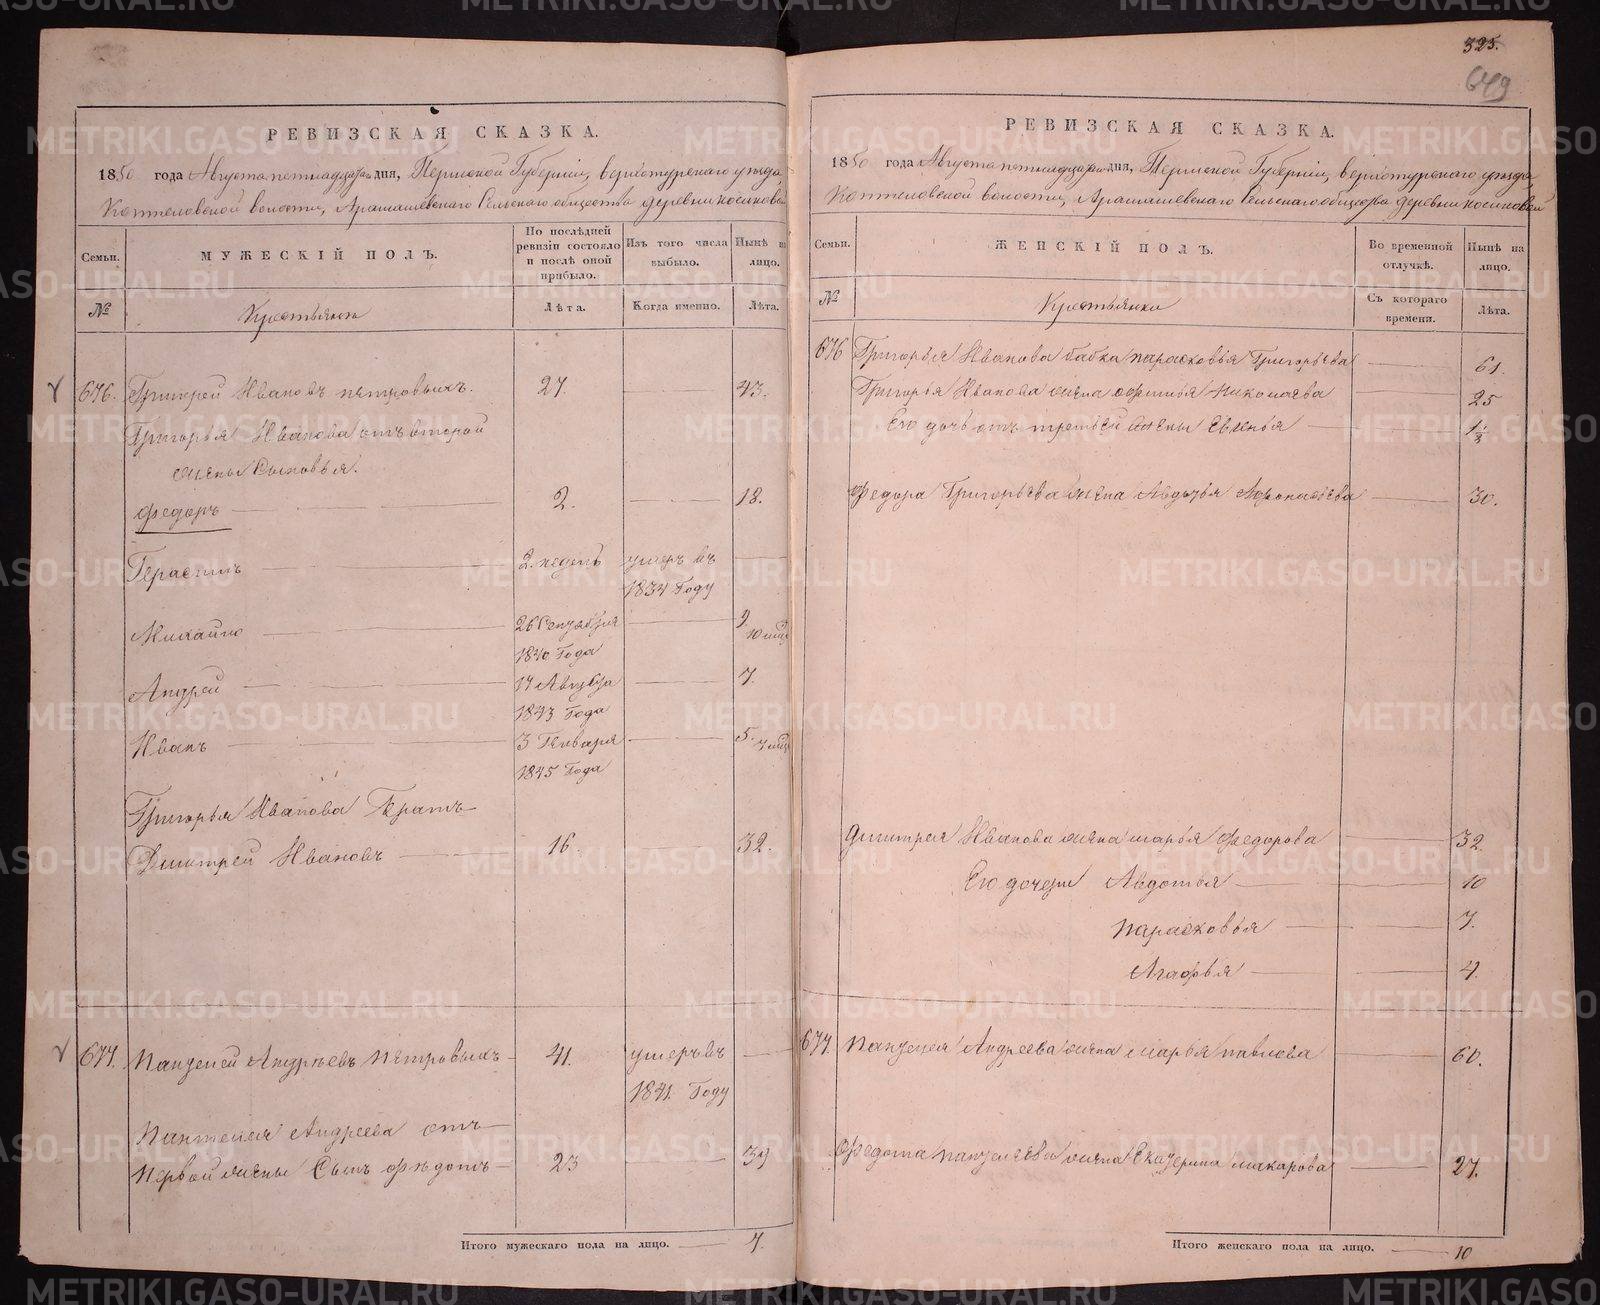 325.
649
РЕВИЗСКАЯ СКАЗКА.
1850 года Августа пятнадцатаго дня, Пермской Губерніи, верхотурскаго уѣзда
Коптеловской волости, Арамашевскаго Сельскаго общества деревни косиковой
Семьи.
МУЖЕСКІЙ ПОЛЪ.
По послѣдней ревизіи состояло и послѣ оной прибыло.
Изъ того числа выбыло.
Нынѣ на лицо.
№
Крестьянъ
Лѣта.
Когда именно.
Лѣта.
676. Григорей Ивановъ петровыхъ. 27. 43.
Григорья Иванова отъ второй
жены Сыновья.
Федоръ 2. 18.
Герасимъ 2. недель умеръ въ
1834 Году
Михайло 26 Сентября 9.
1840 Года 10 мѣс
Андрей 17 Августа 7.
1843 Года
Иванъ 3 Генваря 5. 7 мѣс
1845 Года
Григорья Иванова Братъ
Дмитрей Ивановъ 16. 32.
677. Пантелей Андрѣевъ Петровыхъ 41. умеръ въ
1841. Году
Пантелея Андреева отъ
Первой жены Сынъ Федотъ 23 39
Итого мужескаго пола на лицо. 7.
РЕВИЗСКАЯ СКАЗКА.
1850 года Августа пятнадцатаго дня, Пермской Губерніи, верхотурскаго уѣзда,
Коптеловской волости, Арамашевскаго Сельскаго общества деревни косиковой
Семьи.
ЖЕНСКІЙ ПОЛЪ.
Во временной отлучкѣ.
Нынѣ на лицо.
№
Крестьянки
Съ котораго времени.
Лѣта.
676 Григорья Иванова бабка парасковья Григорьева 61.
Григорья Иванова жена Офимья Николаева 25
Его дочь отъ третьей жены Евгенья 1 1/3
Федора Григорьева жена Авдотья Афонасьева 30.
Дмитрея Иванова жена марья Федорова 32.
Его дочери Авдотья 10
Парасковья 7.
Агафья 4.
677. Пантелея Андреева жена Марья павлова 60.
Федота пантелеева жена Екатерина макарова 27.
Итого женскаго пола на лицо. 10
METRIKI.GASO-URAL.RU